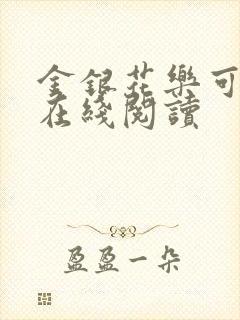 金銀花樂可
在綫閱讀
盈盈一朵